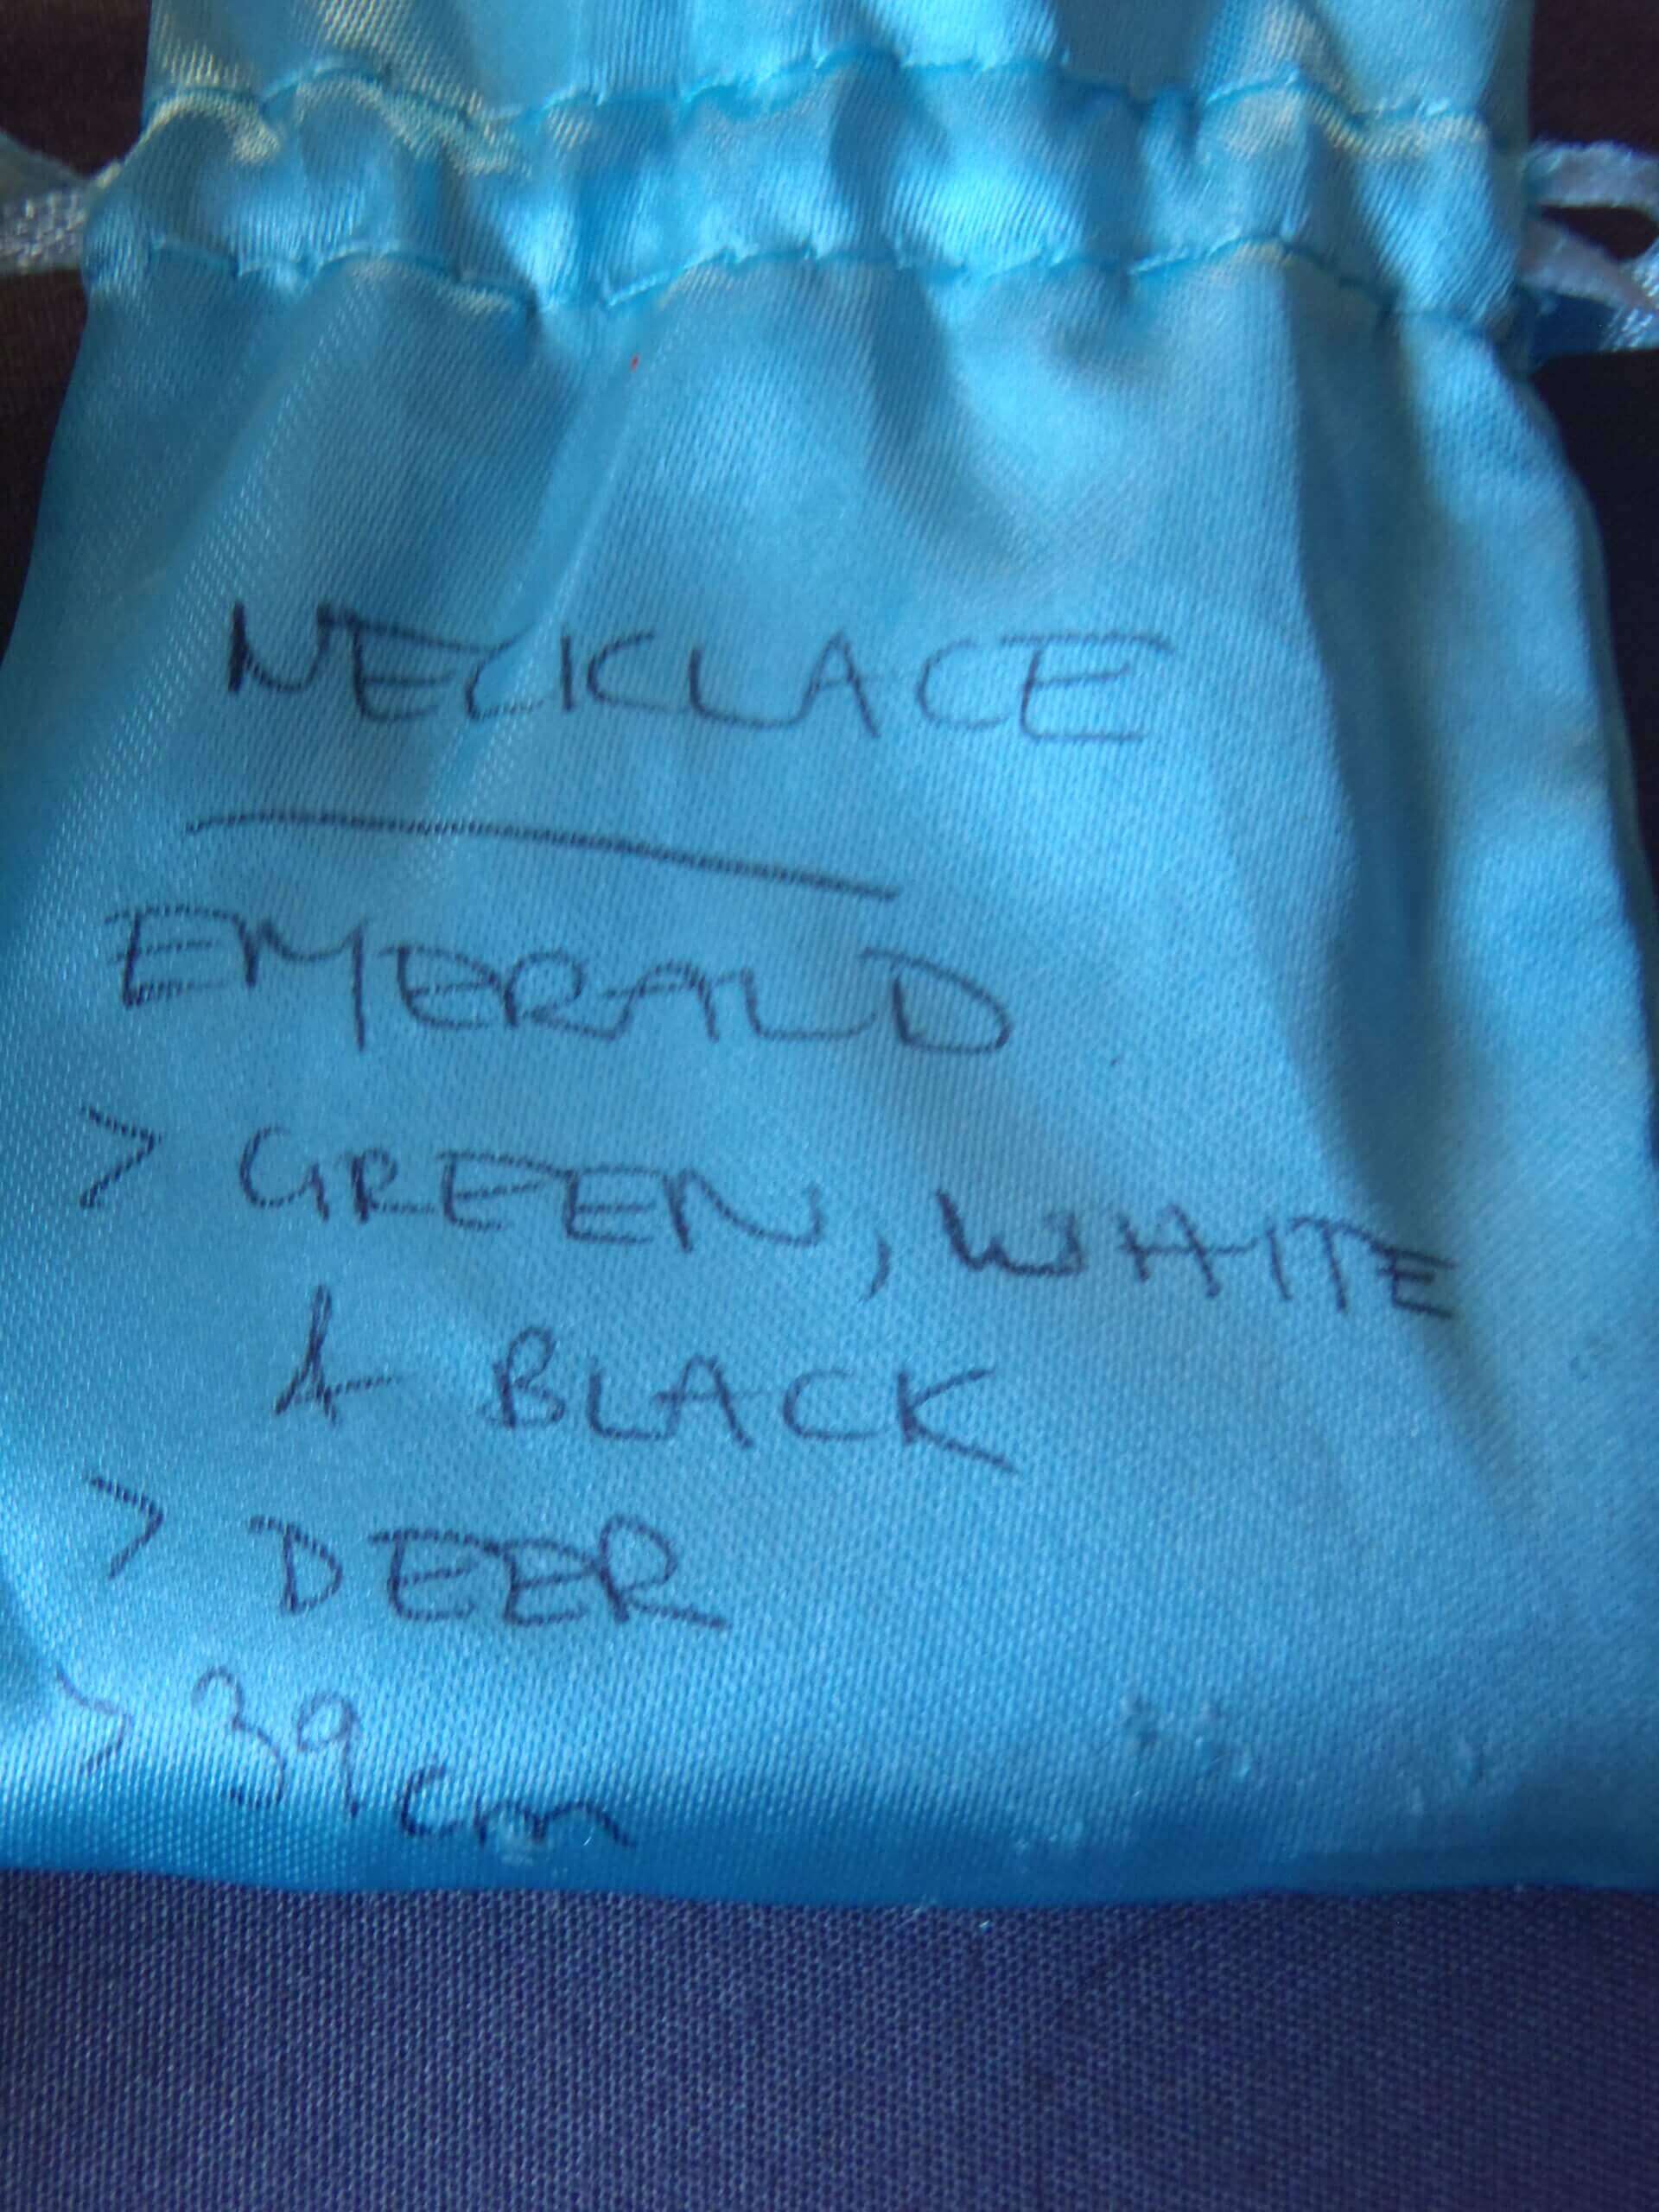 NECKLACE
EMERALD
> GREEN, WHITE
& BLACK
> DEER
> 39cm